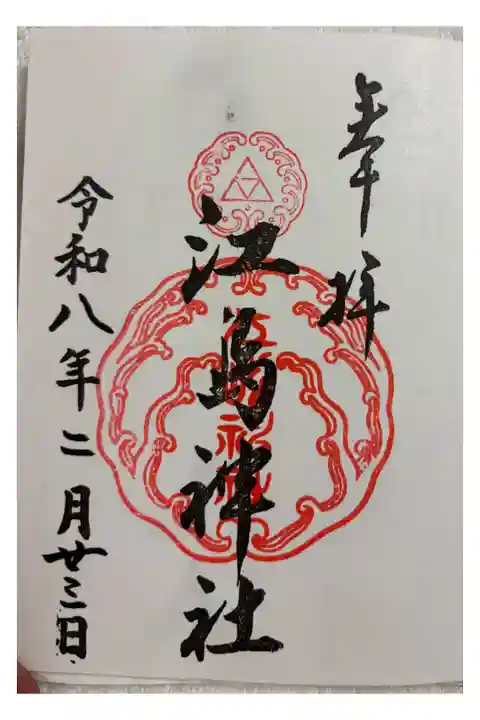 奉拝
江島神社
令和八年二月廿三日